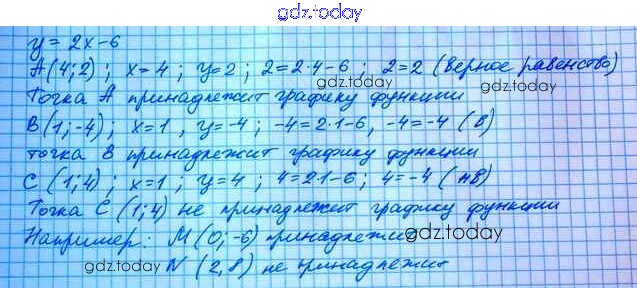 gdz.today
y = 2x-6
A(4;2) ; x=4 ; y=2 ; 2=2·4-6 ; 2=2 (верное равенство)
gdz.today
Точка A принадлежит графику функции
B(1;-4), x=1, y=-4 ; -4=2·1-6, -4=-4 (В)
gdz.today
точка B принадлежит графику функции
C (1;4) ; x=1 ; y=4 ; 4=2·1-6 ; 4=-4 (нВ)
Точка C (1;4) не принадлежит графику функции
Например: M (0;-6) принадлежит
gdz.today
gdz.today
N (2,8) не принадлежит